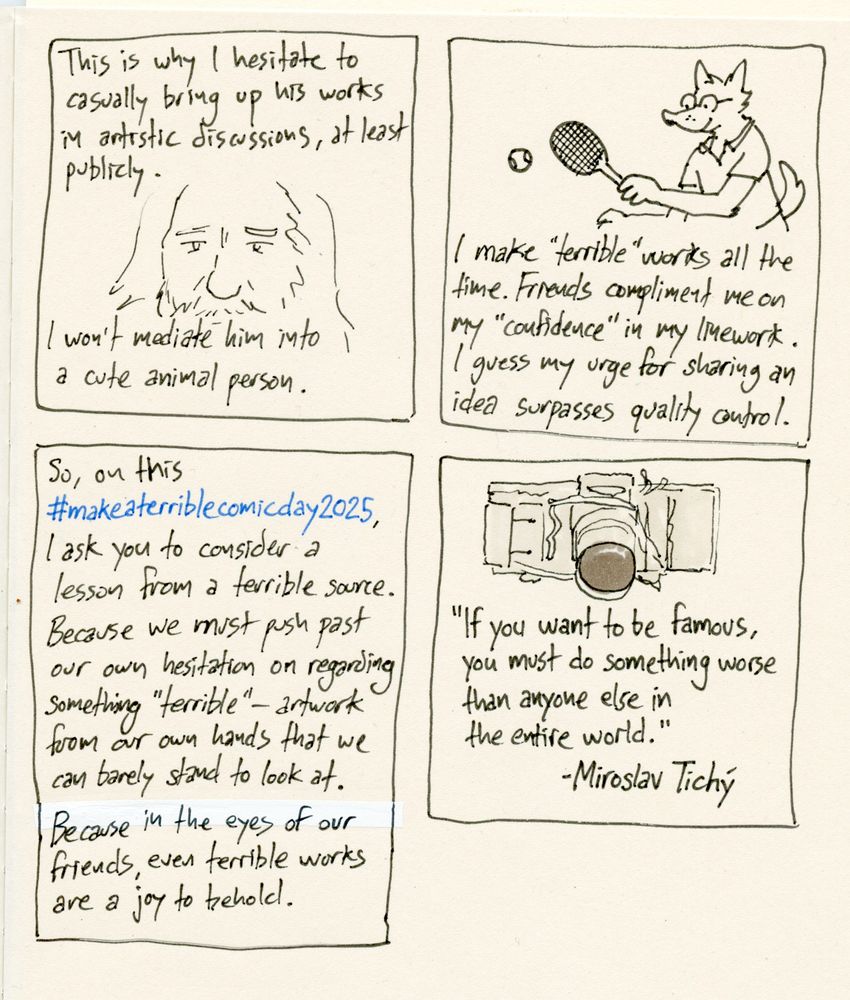 This is why I hesitate to
casually bring up his works
in artistic discussions, at least
publicly.
I won't mediate him into
a cute animal person.
I make "terrible" works all the
time. Friends compliment me on
my "confidence" in my linework.
I guess my urge for sharing an
idea surpasses quality control.
So, on this
#makeaterriblecomicday2025,
I ask you to consider a
lesson from a terrible source.
Because we must push past
our own hesitation on regarding
something "terrible" – artwork
from our own hands that we
can barely stand to look at.
Because in the eyes of our
friends, even terrible works
are a joy to behold.
"If you want to be famous,
you must do something worse
than anyone else in
the entire world."
-Miroslav Tichý